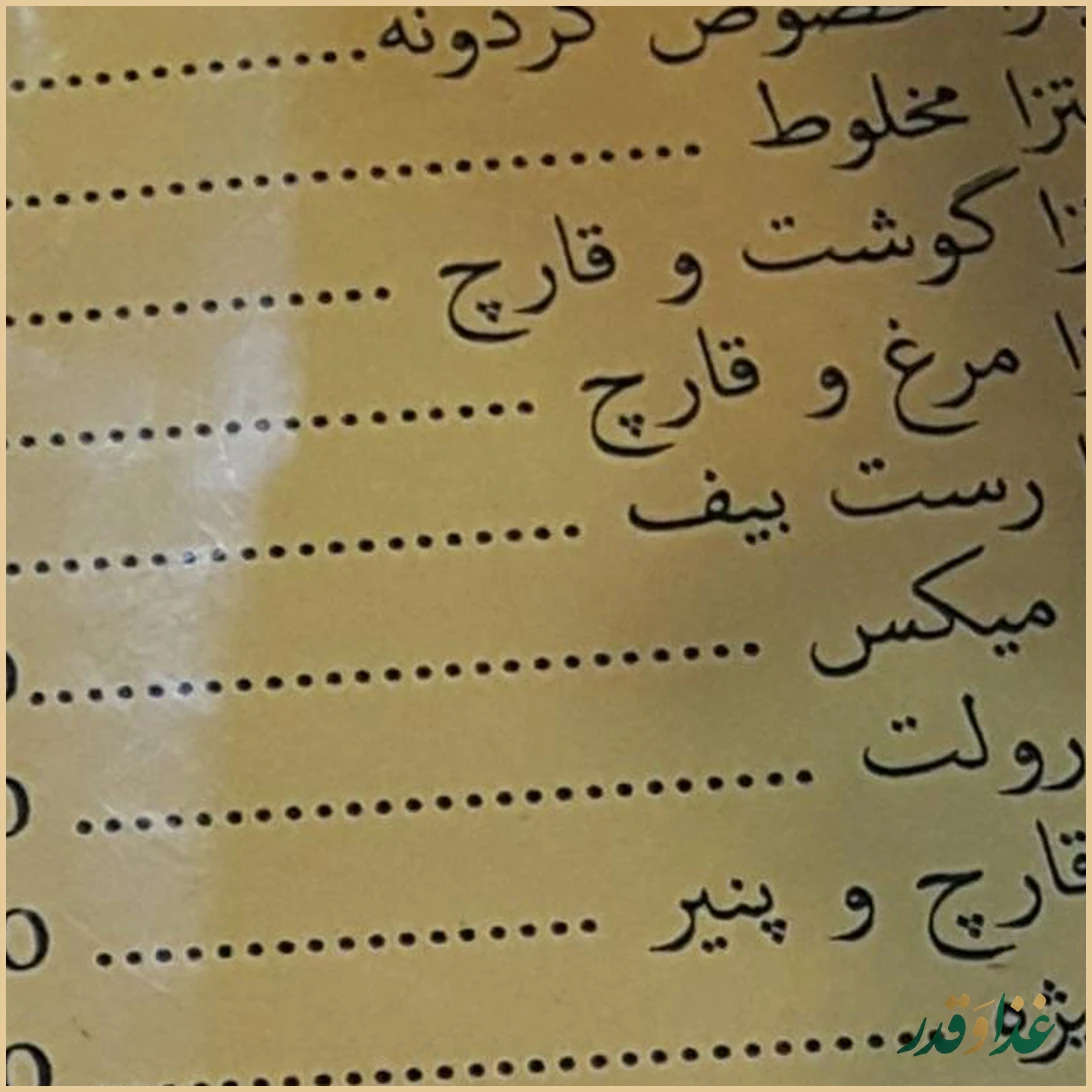 مخصوص گردونه
پیتزا مخلوط
گوشت و قارچ
مرغ و قارچ
رست بیف
میکس
رولت
قارچ و پنیر
غذا و قدر